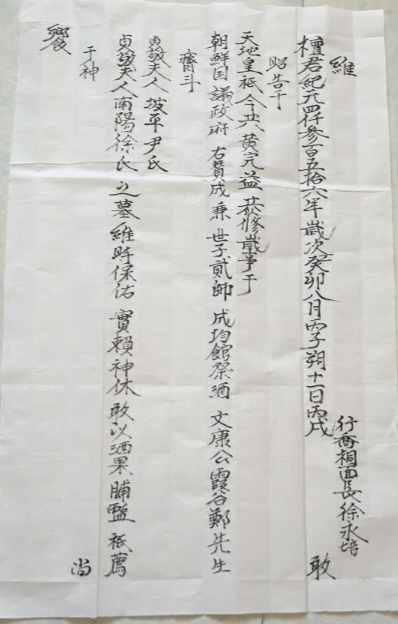 維
檀君紀元四仟參百五拾六年 歲次癸卯八月丙子朔十一日丙戌
行喬桐面長徐永培 敢
昭告于
天地皇祇 今 黃元益 恭修歲事于
朝鮮国議政府 右贊成 兼 世子貳師 成均館祭酒 文康公霞谷鄭先生
齊斗
貞敬夫人 坡平尹氏
貞敬夫人南陽徐氏 之墓 維時保佑 實賴神休 敢以酒果 脯醢 祗薦
于神 尚
饗